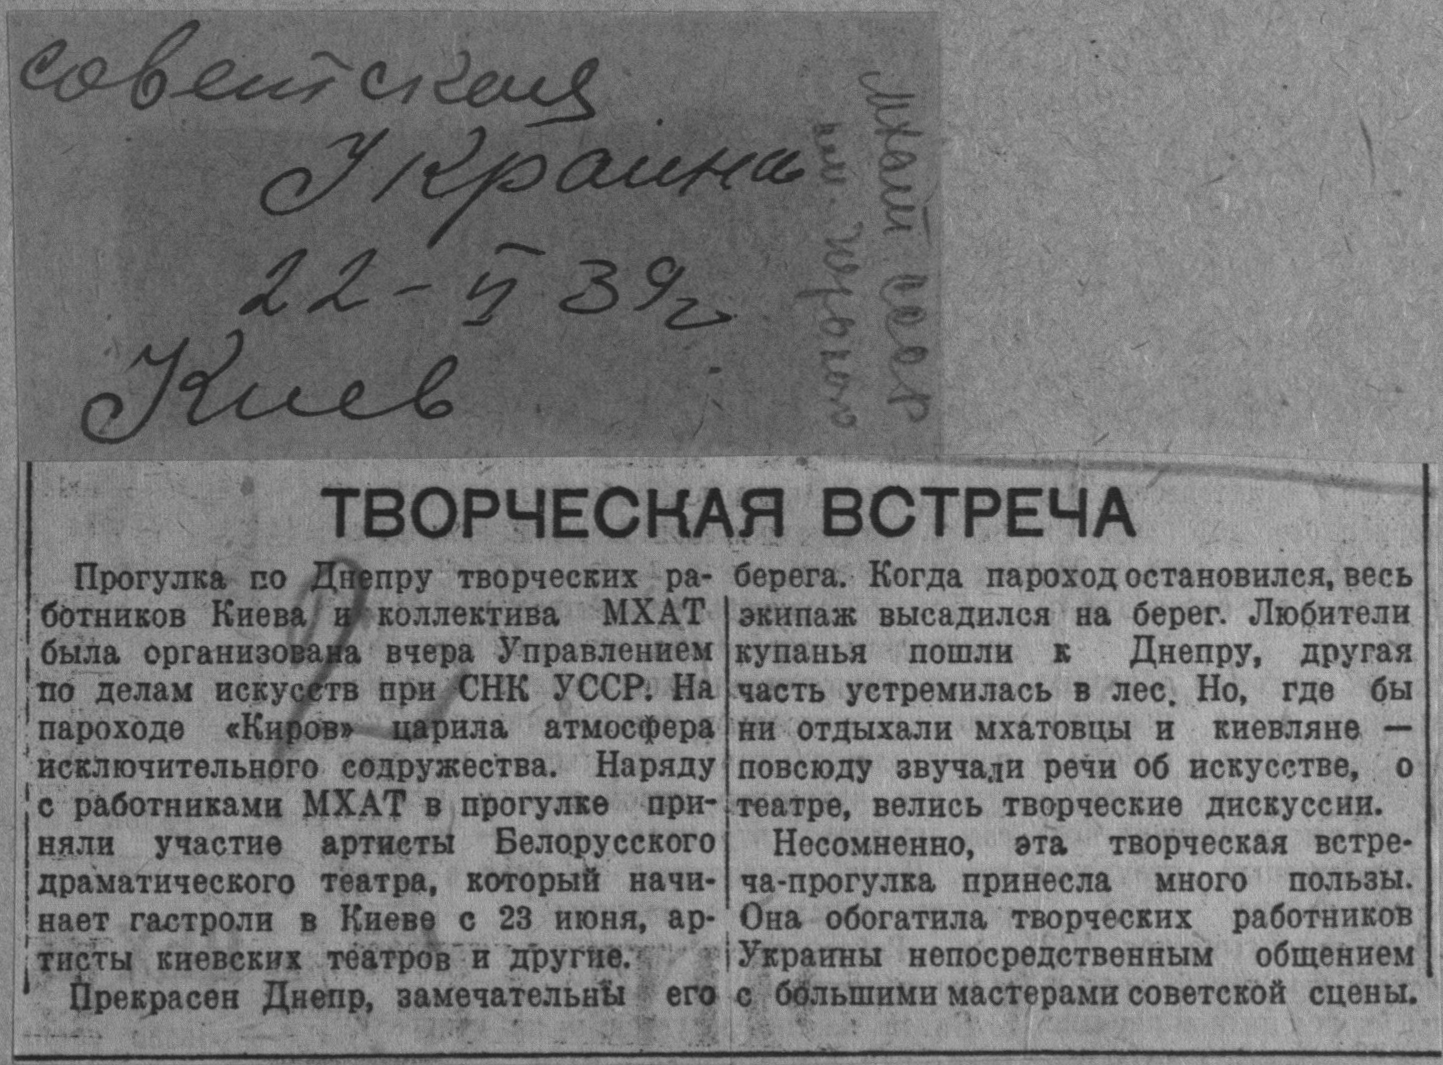 советская
Украина
22-VI 39г
Киев
МХАТ СССР
им. Горького
ТВОРЧЕСКАЯ ВСТРЕЧА
Прогулка по Днепру творческих ра-
ботников Киева и коллектива МХАТ
была организована вчера Управлением
по делам искусств при СНК УССР. На
пароходе «Киров» царила атмосфера
исключительного содружества. Наряду
с работниками МХАТ в прогулке при-
няли участие артисты Белорусского
драматического театра, который начи-
нает гастроли в Киеве с 23 июня, ар-
тисты киевских театров и другие.
Прекрасен Днепр, замечательны его
берега. Когда пароход остановился, весь
экипаж высадился на берег. Любители
купанья пошли к Днепру, другая
часть устремилась в лес. Но, где бы
ни отдыхали мхатовцы и киевляне —
повсюду звучали речи об искусстве, о
театре, велись творческие дискуссии.
Несомненно, эта творческая встре-
ча-прогулка принесла много пользы.
Она обогатила творческих работников
Украины непосредственным общением
с большими мастерами советской сцены.